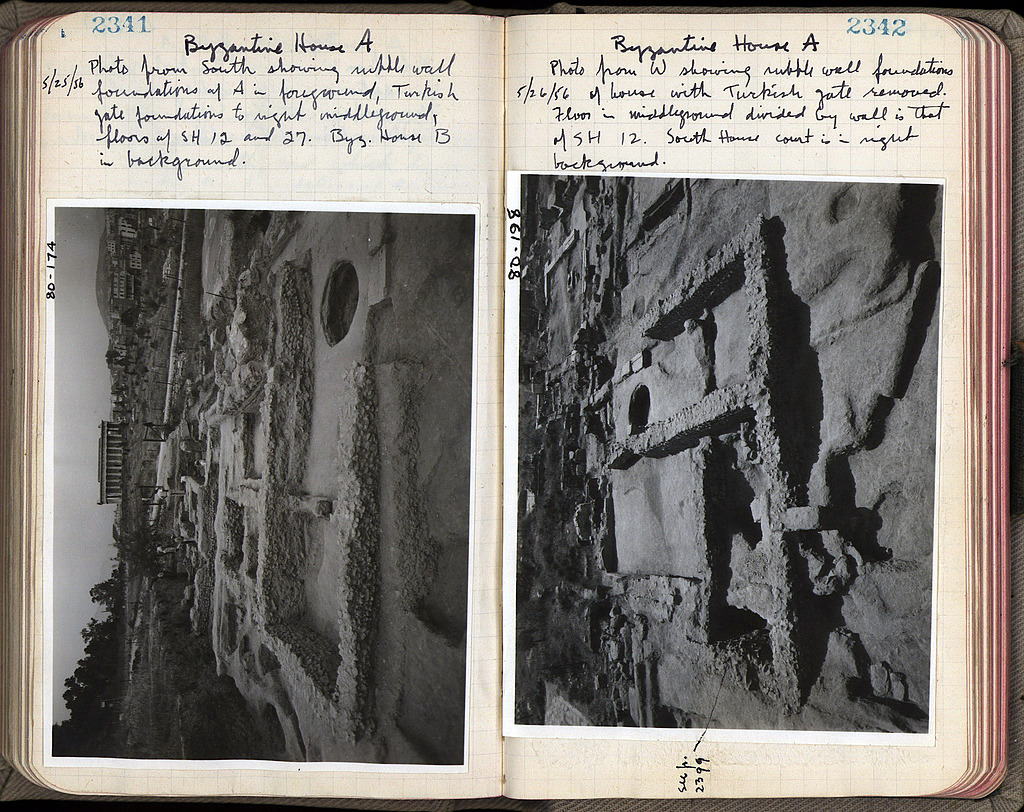 2341
Byzantine House A
5/25/56 Photo from South showing rubble wall
foundations of A in foreground, Turkish
gate foundations to right middleground,
floors of SH 12 and 27. Byz. House B
in background.
80-174
2342
Byzantine House A
Photo from W showing rubble wall foundations
5/26/56 of house with Turkish gate removed.
Floor in middleground divided by wall is that
of SH 12. South House court is in right
background.
80-198
see p.
2399